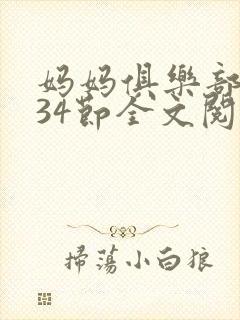 妈妈俱樂部
34節全文閱
掃蕩小白狼